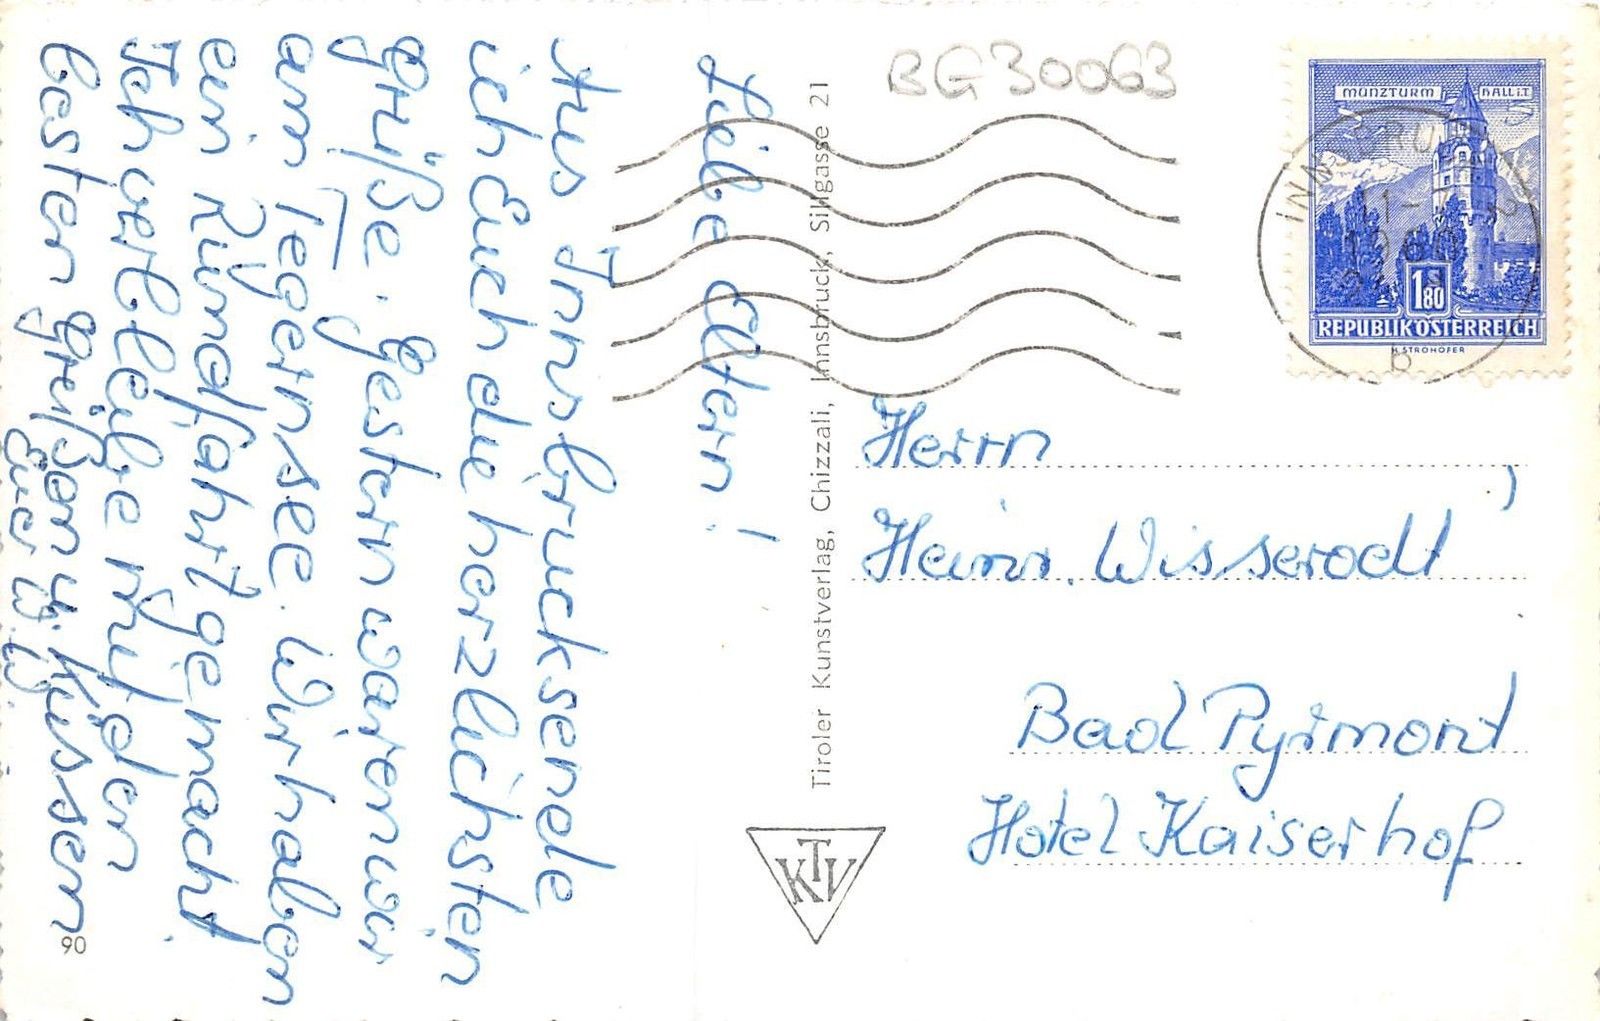 Liebe Eltern!
Aus Innsbruck sende
ich Euch die herzlichsten
Grüße. Gestern waren wir
am Tegernsee. Wir haben
ein Rundfahrt gemacht.
Ich verbleibe mit den
besten grüßen u. Küssen
Euer W.W.
90
Tiroler Kunstverlag, Chizzali, Innsbruck, Sillgasse 21
KTV
BG30063
MÜNZTURM HALL i.T.
1S 80
REPUBLIK ÖSTERREICH
H. STROHOFER
INNSBRUCK
b
Herrn
Heinr. Wisserodt
Bad Pyrmont
Hotel Kaiserhof